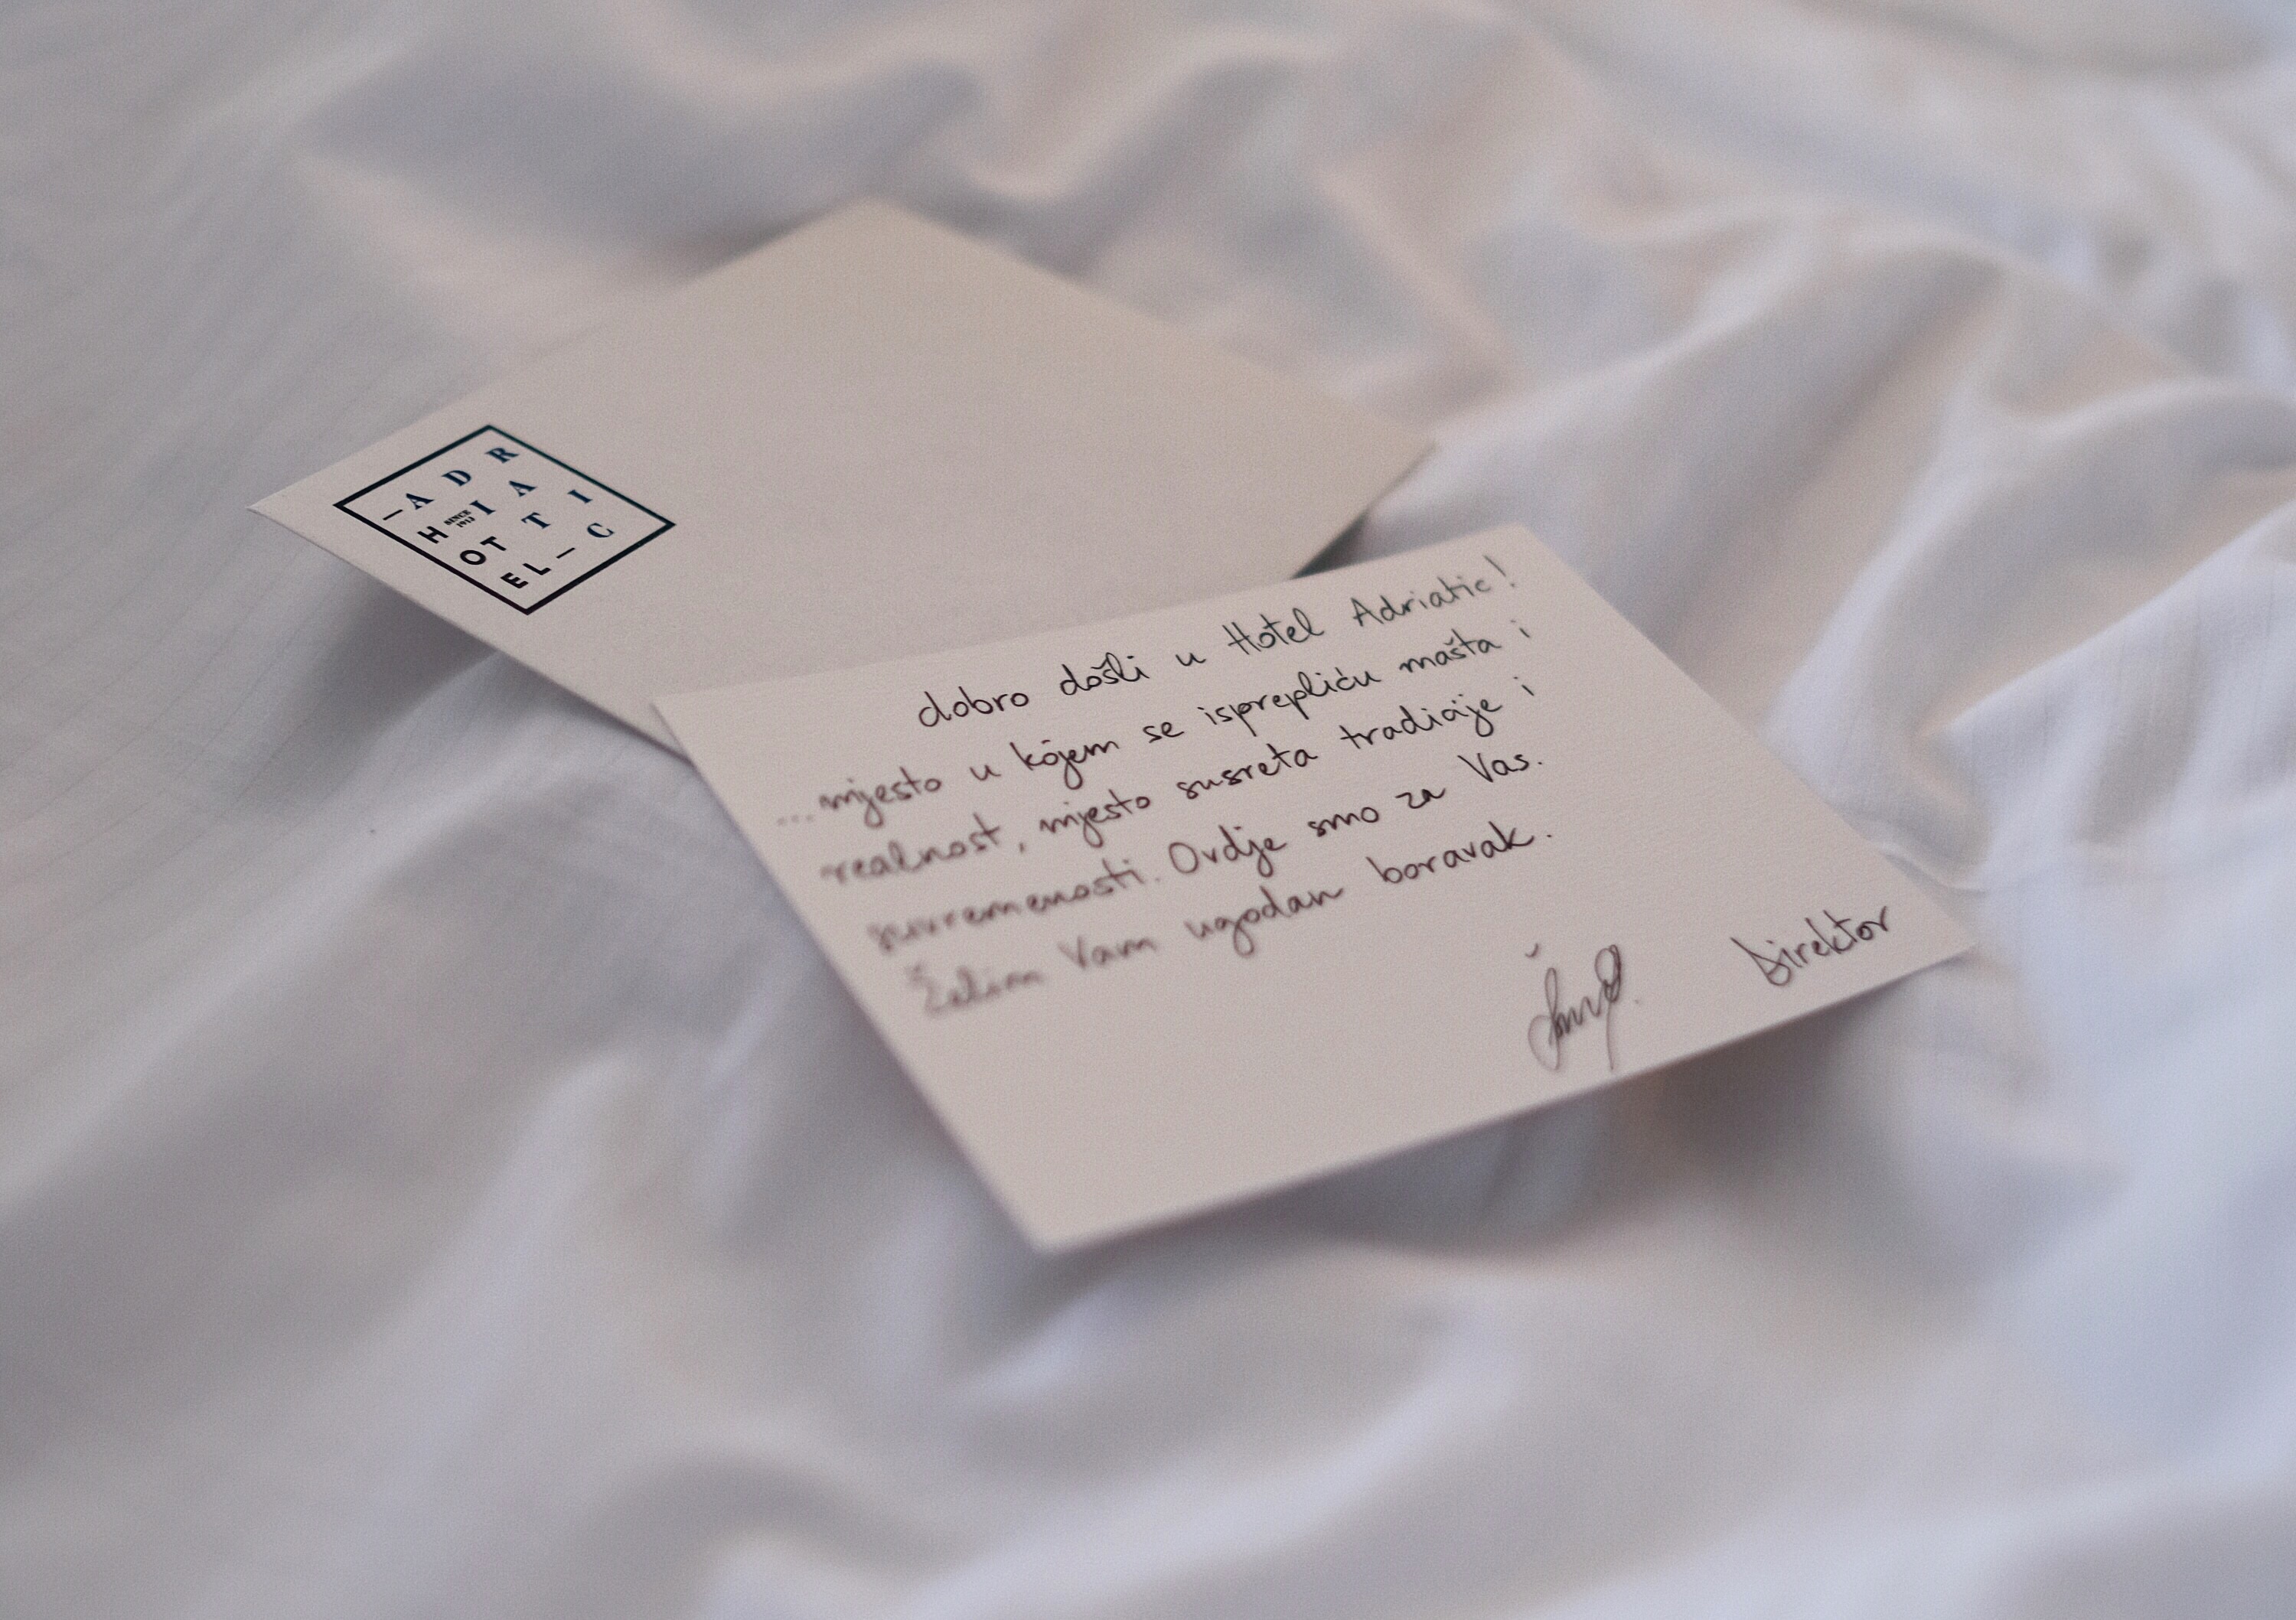 — A D R
H SINCE 1913 I A
OT T I
EL — C
dobro došli u Hotel Adriatic!
...mjesto u kojem se isprepliću mašta i
realnost, mjesto susreta tradicije i
suvremenosti. Ovdje smo za Vas.
Želim Vam ugodan boravak.
Direktor